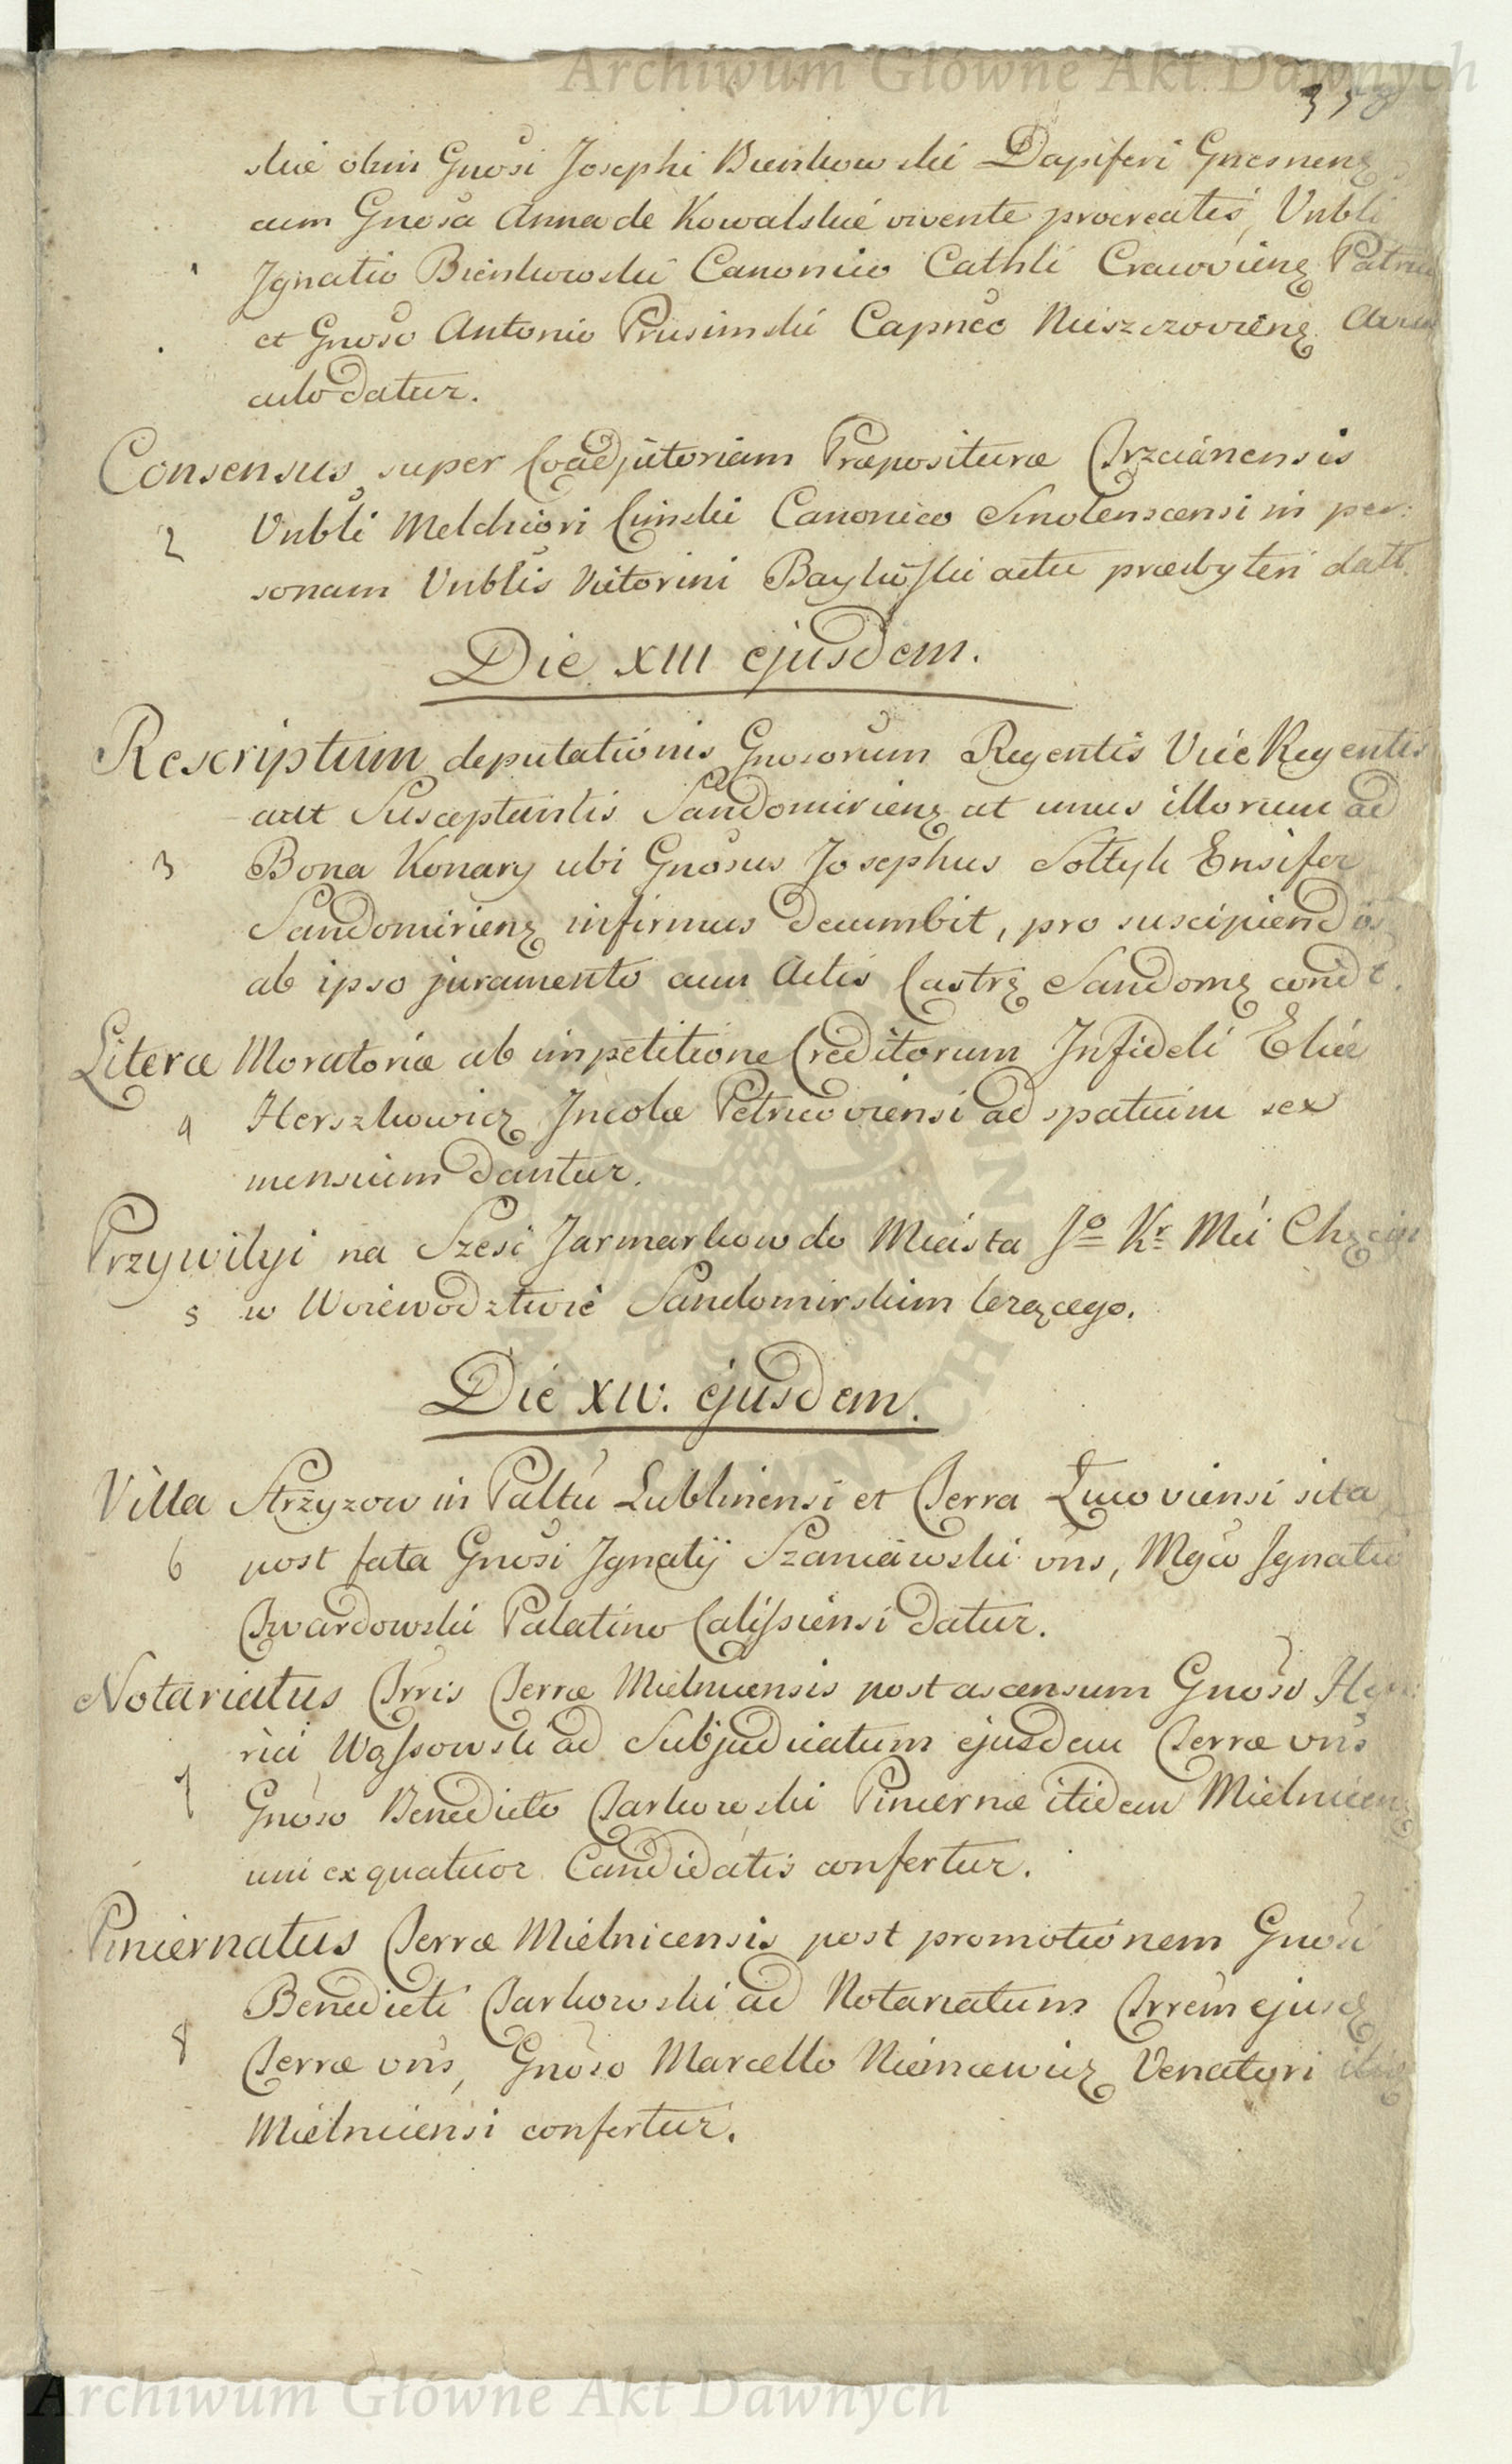 Archiwum Główne Akt Dawnych
338
skie olim Gnosi Josephi Bienkowskii Dapiferi Gnesnenę
cum Gnosa Anna de Kowalskie vivente procreatis, Vnbli
Ignatio Bienkowskii Canonico Cathli Cracovienę
et Gnoso Antonio Prusimskii Capneo Nieszczovienę
culo datur.
Consensus super Coadjutoriam Præpositura Trzcianensis
2 Vnbli Melchiori Cimskii Canonico Smolenscensi in per:
sonam Vnblis Victorini Baykoskii actu præsbyteri datt.
Die XIII ejusdem.
Rescriptum deputationis Gnosorum Regentis Vice Regentis
aut Susceptantis Sandomirienę ut unus illorum ad
3 Bona Konary ubi Gnosus Josephus Sołtyk Ensifer
Sandomirienę infirmus decumbit, pro suscipiendo
ab ipso juramento cum Actis Castrę Sandomę condt.
Literæ Moratoriæ ab impetitione Creditorum Infideli Eliæ
4 Herszkowicz Incolæ Petricoviensi ad spatium sex
mensium dantur.
Przywilyi na Szesc Jarmarkow do Miasta Jo Kr Mci Chęcin
5 w Woiewodztwie Sandomirskim lezącego.
Die XIV. ejusdem.
Villa Strzyzow in Paltu Lublinensi et Terra Łucoviensi sita
6 post fata Gnosi Ignatij Szaniawski vns, Mgco Ignatio
Twardowskii Palatino Calissiensi datur.
Notariatus Trris Terræ Mielnicensis post ascensum Gnoso Hen:
rici Wąssowski ad Subjudicatum ejusdem Terræ vns
7 Gnoso Benedicto Tarkowskii Pincernæ itidem Mielnicenę
uni ex quatuor Candidatis confertur.
Pincernatus Terræ Mielnicensis post promotionem Gnosi
Benedicti Tarkowski ad Notariatum Trrem ejusdę
8 Terræ vns, Gnoso Marcello Niemcewicz Venatori
Mielnicensi confertur.
Archiwum Główne Akt Dawnych